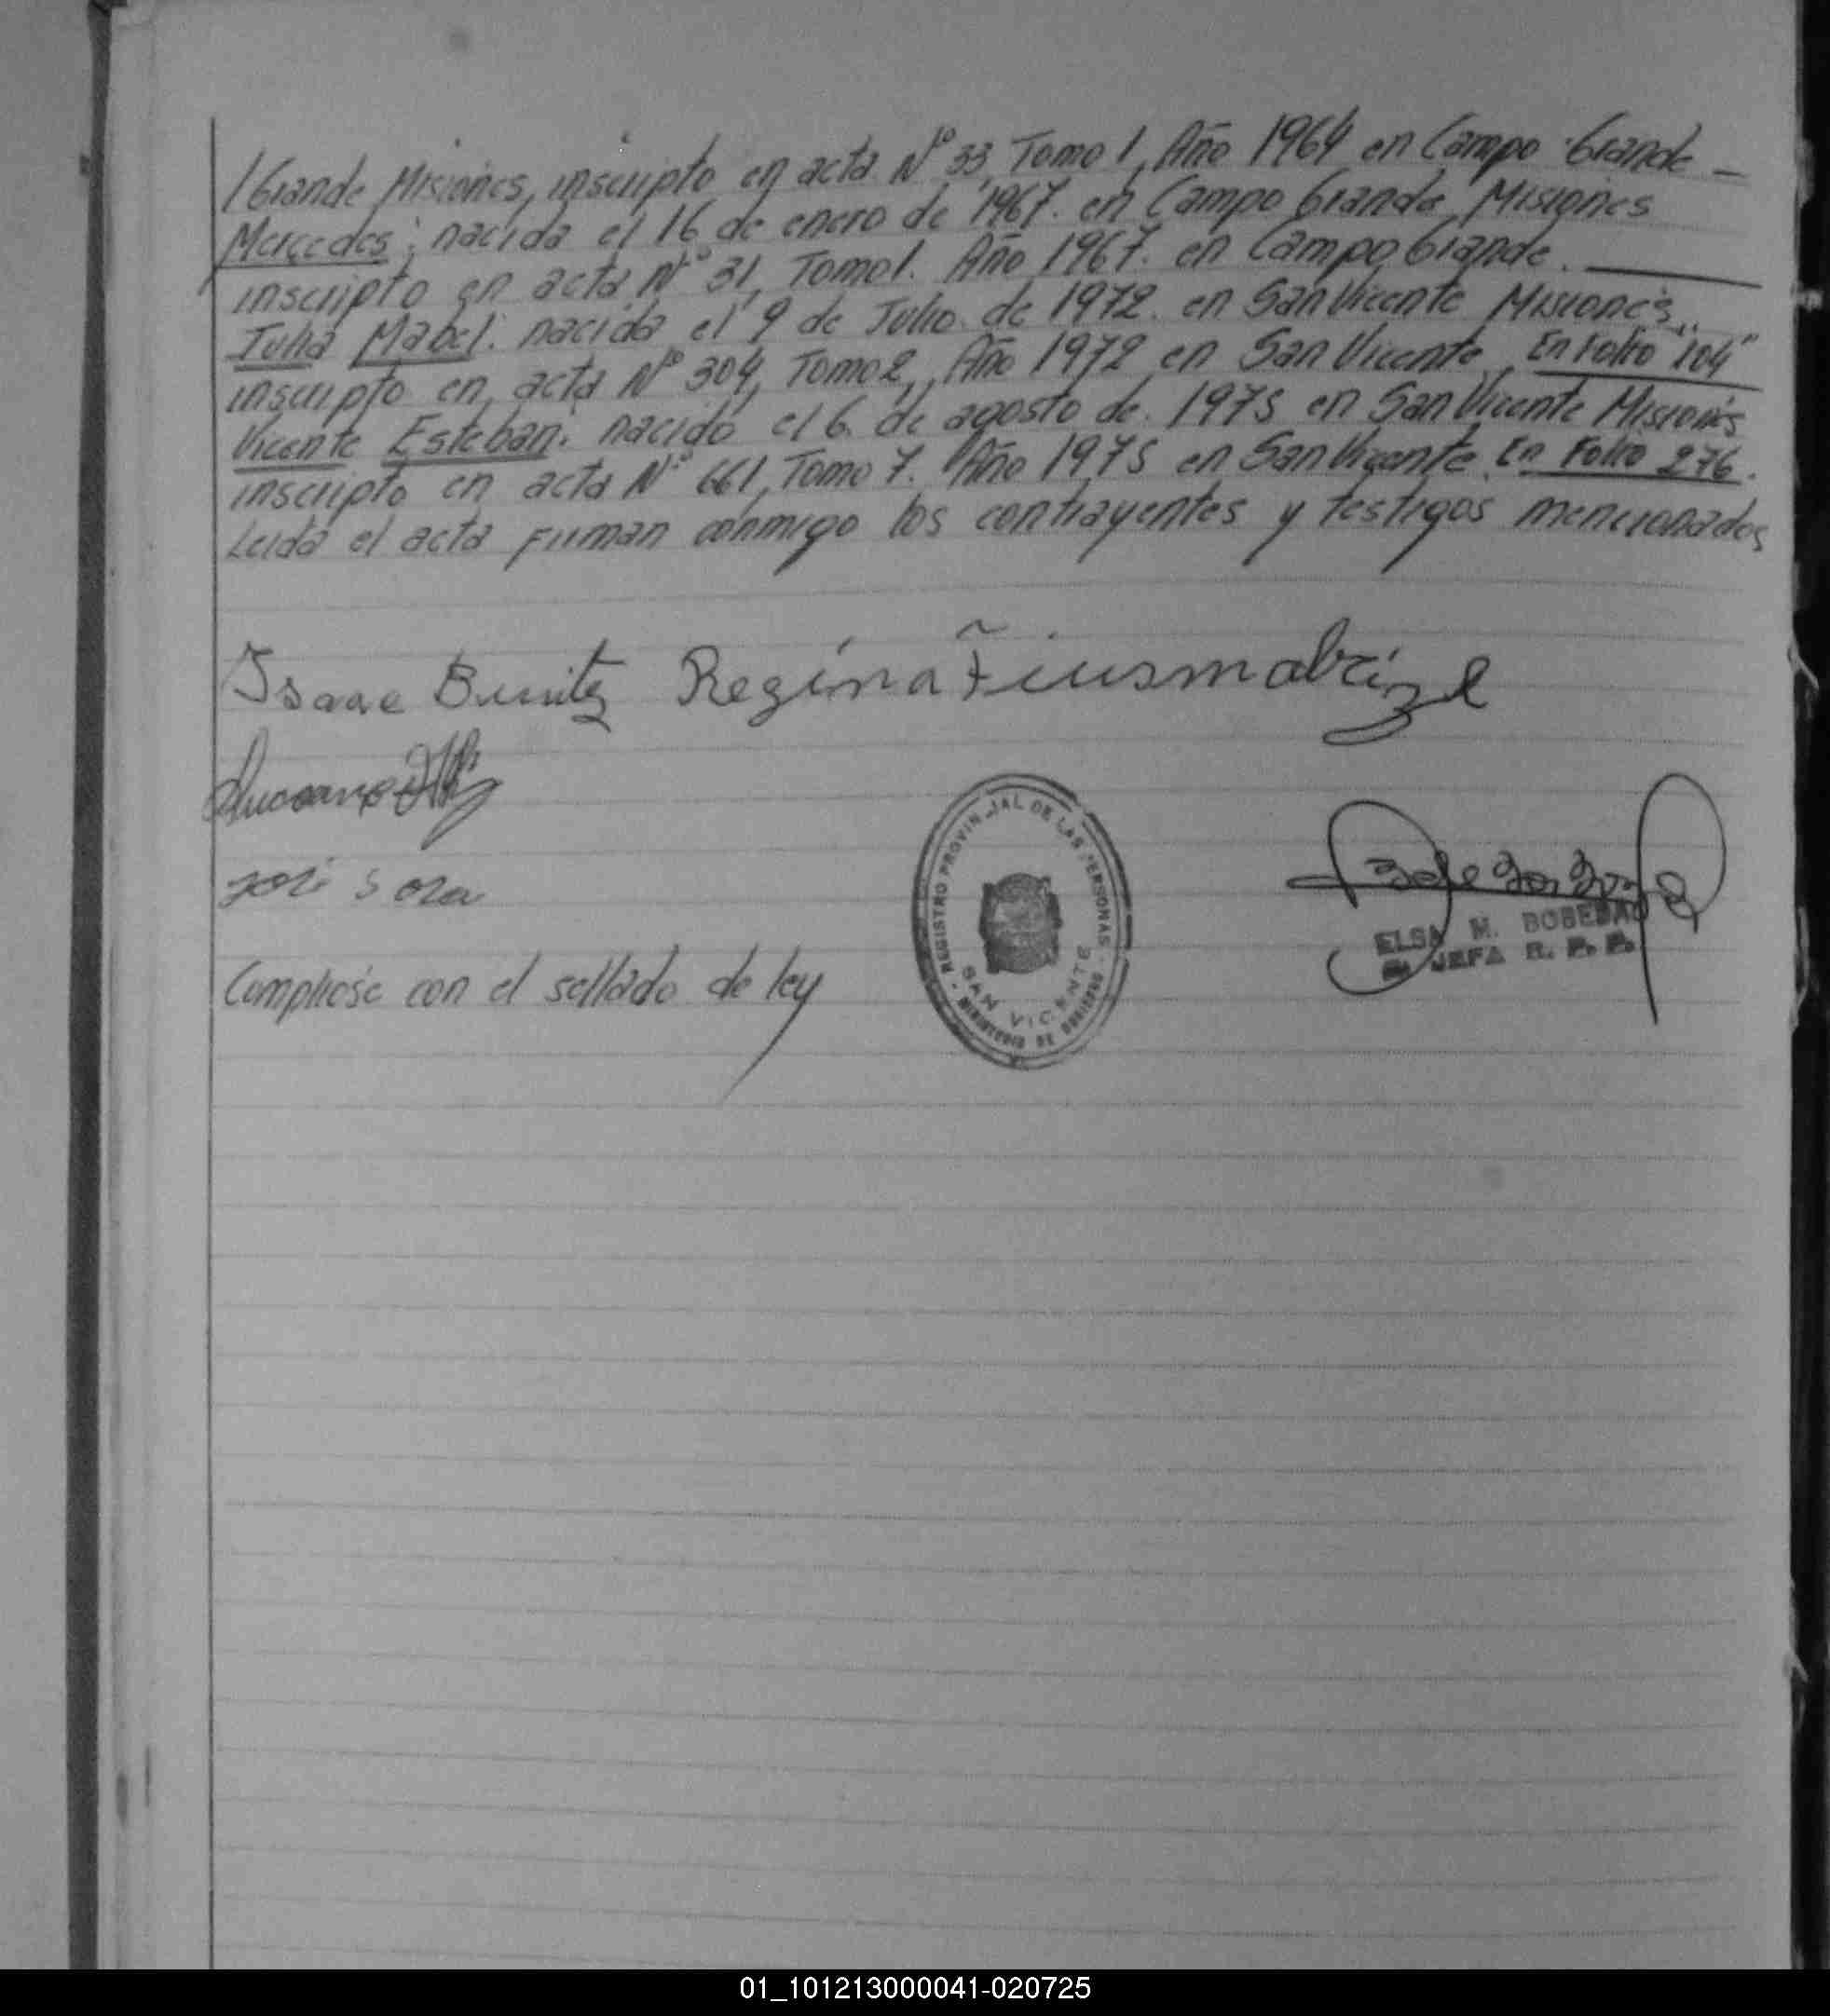 /Grande Misiones, inscripto en acta Nº 33, Tomo 1, Año 1964 en Campo Grande —
Mercedes; nacida el 16 de enero de 1967. en Campo Grande, Misiones
inscripto en acta Nº 31, Tomo 1. Año 1967. en Campo Grande.
Julia Mabel. nacida el 9 de Julio de 1972. en San Vicente Misiones
inscripto en acta Nº 304, Tomo 2, Año 1972 en San Vicente, En Folio "104"
Vicente Esteban. nacido el 6 de agosto de 1975 en San Vicente Misiones
inscripto en acta Nº 661, Tomo 7. Año 1975 en San Vicente. En Folio 276.
Leida el acta Firman conmigo los contrayentes y testigos mencionados
Isaac Benitez Regina
José Sosa
REGISTRO PROVINCIAL DE LAS PERSONAS
SAN VICENTE
ELSA M. BOBEDA
JEFA R. P. P.
Complióse con el sellado de ley
01_101213000041-020725